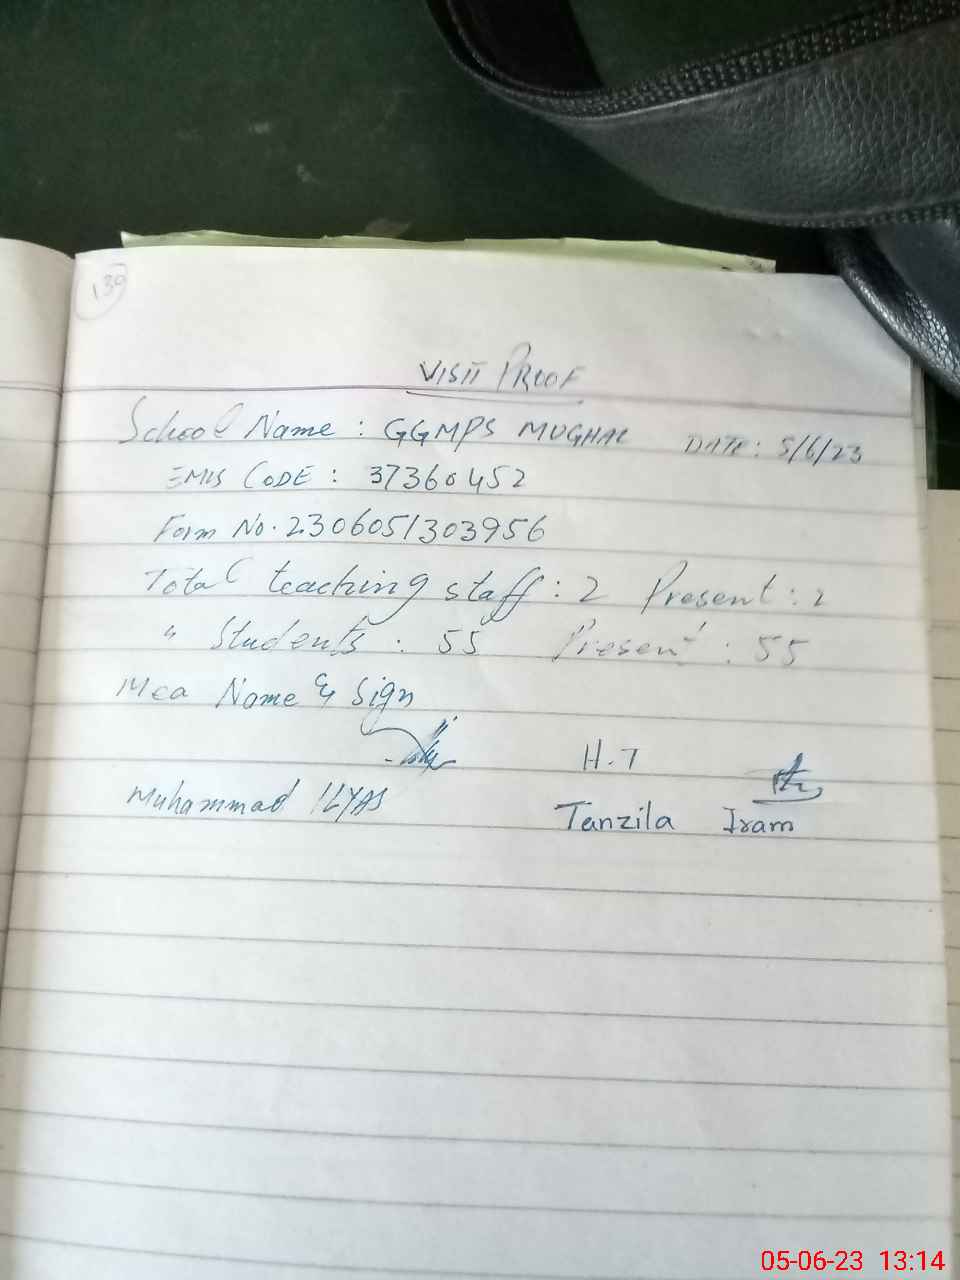 139
VISIT PROOF
School Name : GGMPS MUGHAL DATE: 5/6/23
EMIS CODE : 37360452
Form No. 2306051303956
Total teaching staff : 2 Present : 2
" Students : 55 Present : 55
Mea Name & Sign
H.T
Muhammad ILYAS
Tanzila Iram
05-06-23 13:14